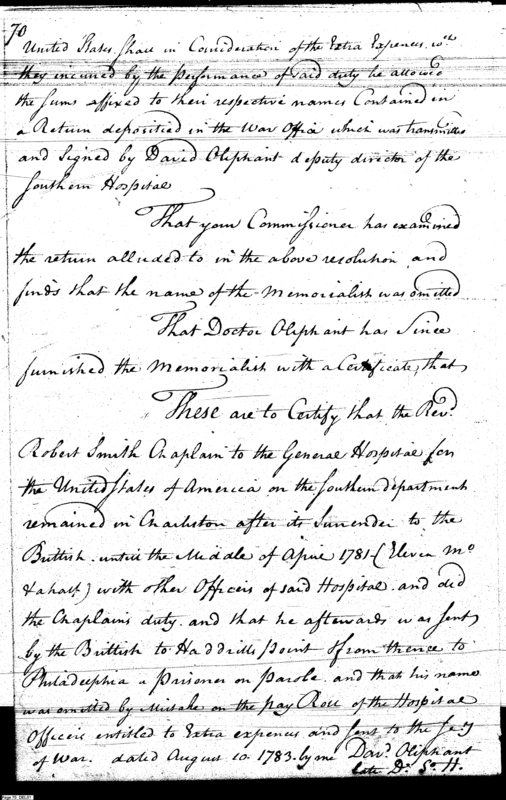 70
United States. Shall in Consideration of the Extra Expences wch
they incurred by the performance of said duty be allowed
the sums affixed to their respective names Contained in
a Return deposited in the War Office which was transmitted
and Signed by David Oliphant deputy director of the
Southern Hospital
That your Commissioner has examined
the return alluded to in the above resolution and
finds that the name of the Memorialist was omitted
That Doctor Oliphant has Since
furnished the Memorialist with a Certificate, that
These are to Certify that the Revd.
Robert Smith Chaplain to the General Hospital for
the United States of America on the Southern department
remained in Charleston after its Surrender to the
Brittish. untill the Middle of April 1781 (Eleven Mo
& a half) with other Officers of said Hospital. and did
the Chaplains duty. and that he afterwards was sent
by the Brittish to Haddrills point & from thence to
Philadelphia a Prisoner on Parole. and that his name
was omitted by Mistake on the pay Roll of the Hospital
Officers entitled to Extra expences and sent to the Secy
of War. dated August 10. 1783. by me Davd. Oliphant
late Dr. So. H.